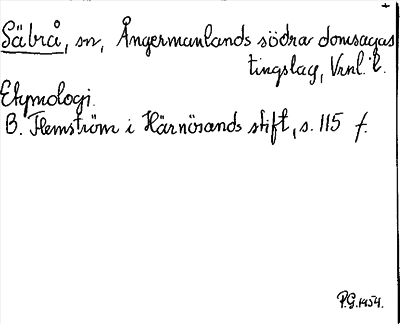 Säbrå, sn, Ångermanlands södra domsagas
tingslag, Vrnl. l.
Etymologi.
B. Flemström i Härnösands stift, s. 115 f.
P.G. 1954.